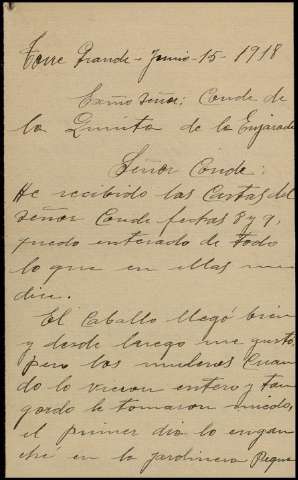 Torre Grande - Junio - 15 - 1918
Exmo Señor: Conde de
la Quinta de la Enjarada
Señor Conde:
He recibido las Cartas del
señor Conde fechas 8 y 9,
quedo enterado de todo
lo que en ellas me
dice.
El Caballo llegó bien
y desde luego me gustó,
pero los muleros Cuan
do lo vieron entero y tan
gordo le tomaron miedo,
el primer dia lo engan
ché en la jardinera Peque